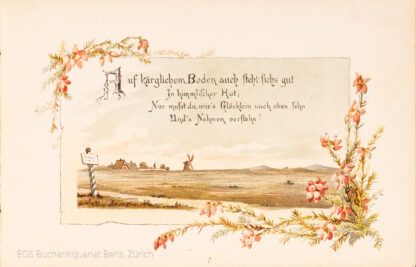 Auf kärglichem Boden auch steht sichs gut
In himmlischer Hut;
Nur mußt du, wie's Glöcklein nach oben sehn
Und's Nehmen verstehn!
EOS Buchantiquariat Benz, Zürich